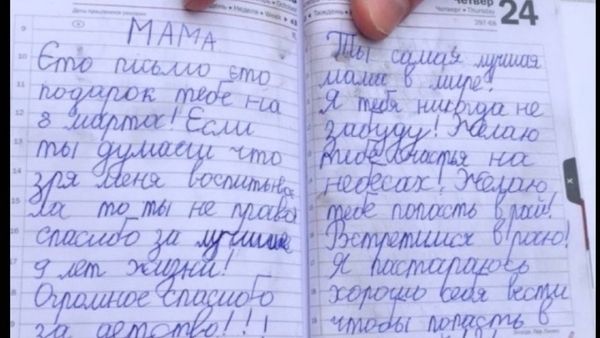 МАМА
Єто письмо єто
подарок тебе на
8 марта! Если
ты думаеш что
зря меня воспитыва
ла то ты не права
спасибо за лучшие
9 лет жизни!
Огромное спасибо
за детство!!!
ЧЕТВЕР
Четверг • Thursday
24
297-68
Ты самая лучшая
мама в мире!
Я тебя никогда не
забуду! Желаю
тебе счастья на
небесах! Желаю
тебе попасть в рай!
Встретимся в раю!
Я пастараюсь
хорошо себя вести
чтобы попасть в